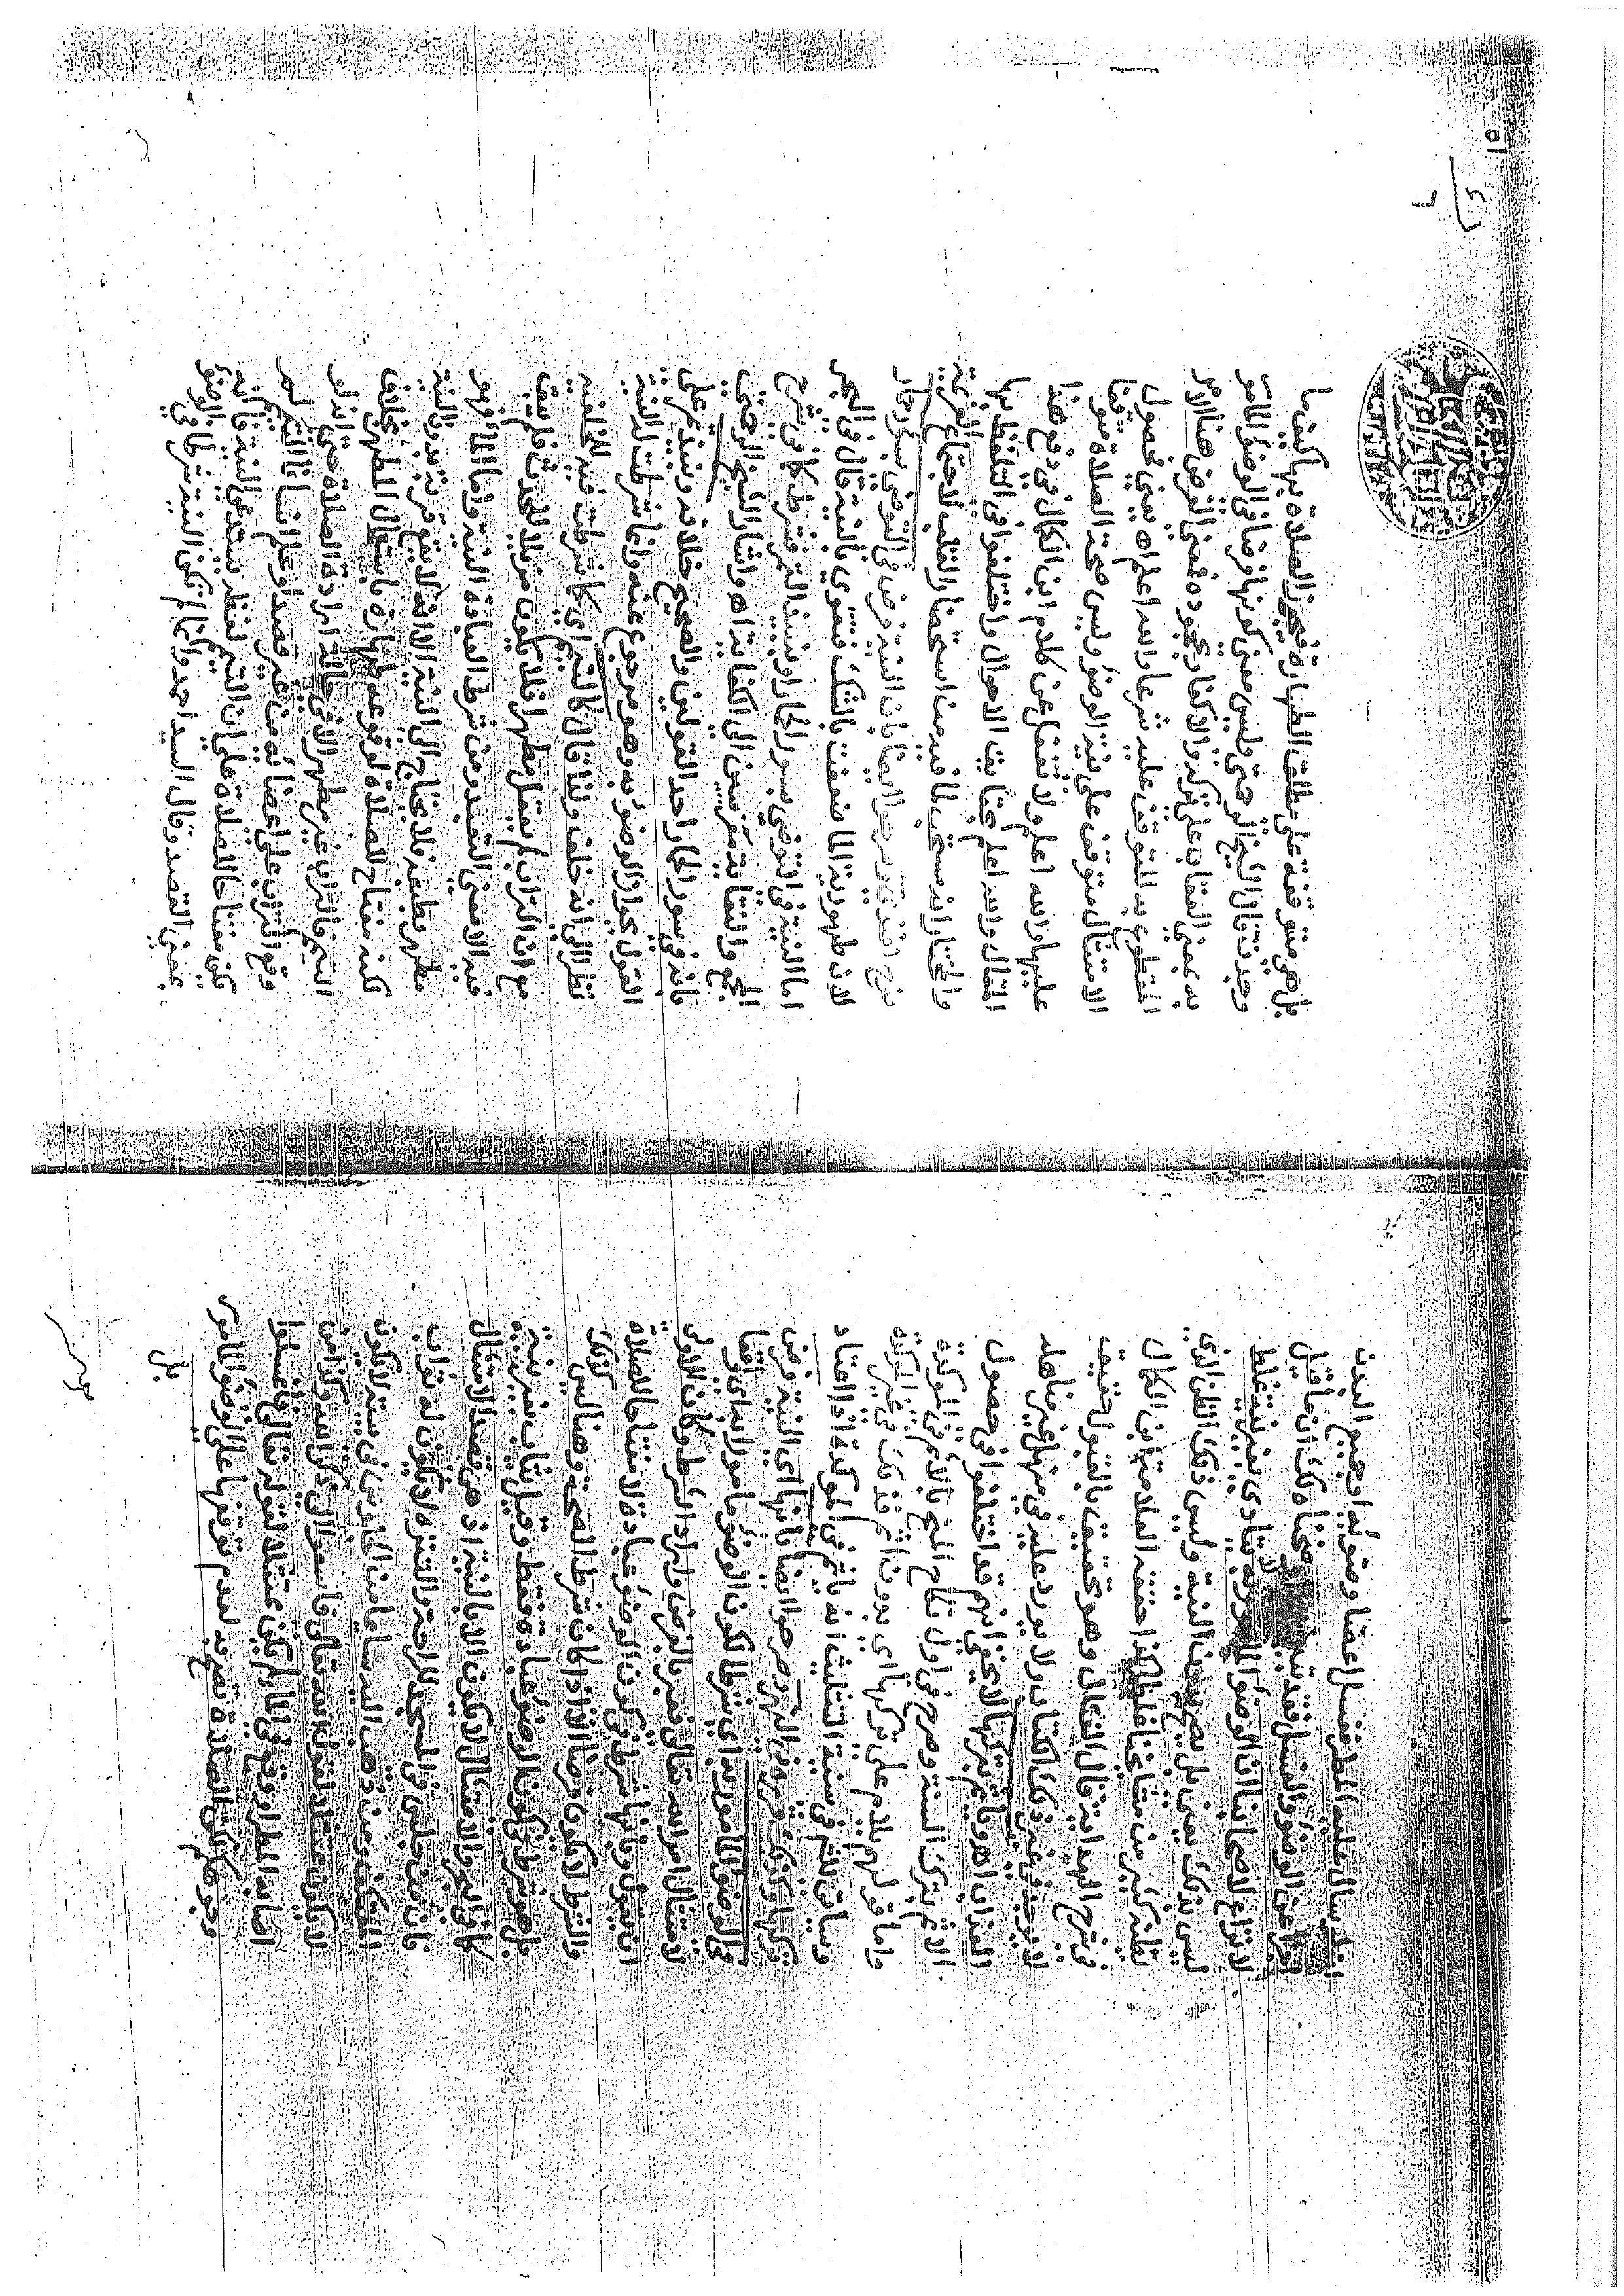 سال عليه المطر فغسل اعضا وضوئه او جميع البدن
اجزأ عن الوضوء والغسل
لا نزاع لاصحابنا ان الوضوء المامور به لا يتادى بغير نية غلط
ليس بذلك يعني بل يصح بدون النية وليس ذلك الظن الذي
نقله كثير من مشايخنا غلط كذا حققه العلامة ابن الكمال
في شرح الهداية قال القتال وهو تحقيق بالقبول حقيق
لا يوجد في غير ذلك الكتاب ولا يورد عليه في منهل غير مناهله
العذاب اهـ وياثم بتركها لا يخفى انهم قد اختلفوا في حصول
الاثم بترك السنة وصرح في اول نكاح النهر بالاثم في الموكدة
واما قولهم يلام على تركها اي بدون اثم فذلك في غير الموكدة
وسياتي للشارح في سنية التثليث انه ياثم في الموكدة اذا اعتاد
تركها وكذلك قرره في النهر وصرحوا ايضا بانها اي النية فرض
في الوضوء المامور به اي شرط لكون الوضوء مامورا به اي واقعا
لامتثال امر الله تعالى فعبر بالفرض واراد الشرط وكان الاولى
ان يقول وبانها شرط في كون الوضوء عبادة لا مفتاحا للصلاة
والشرط لا يكون فرضا الا اذا كان شرط الصحة وهنا ليس كذلك
بل هو شرط في كون الوضوء عبادة فقط وقيل يثاب بغير نية
كما في البحر والامتثال لا يكون الا بالنية اذ هي قصد الامتثال
فان من جلس في المسجد للراحة والتنزه لا يكون له ثواب
المعتكف ومن ذهب اليه ساهيا من الحانوت في سيره لا يكون
لا يكون ممتثلا لقول الله تعالى فاسعوا الى ذكر الله وكذا من
اصابه المطر او وقع في الماء لم يكن ممتثلا لقوله تعالى فاغسلوا
وجوهكم لكن الصلاة تصح به لعدم توقفها على الوضوء المامور
بل
بل هي متوقفة على مطلق الطهارة فتجوز الصلاة بها كيف ما
وجدت وقال الشيخ الرحمتي وليس معنى كونها فرضا في الوضوء المامور
به بمعنى العقاب على تركه والاكفار بجحوده فمعنى الفرض هنا الامر
المقطوع به للتوقف عليه شرعا والله اعلم اهـ يعني فحصول
الامتثال متوقف على نية الوضوء وليس صحة الصلاة متوقفا
عليها والله اعلم ولا تغفل عن كلام ابن الكمال في دفع هذا
المقال والله اعلم بحقايق الاحوال واختلفوا في التلفظ بها
والمختار انه مستحب لما فيه من استحضار القلب لاجتماع العزيمة
وصرحوا ايضا بان النية فرض في التوضي بسؤر حمار
لان طهوريته لما ضعفت بالشك فتقوى بالنية قال في البحر
اما النية في التوضي بسور الحمار او بنبيذ التمر فشرط كما في شرح
المجمع والنقاية معزيين الى الكفاية اهـ واشار الشيخ الرحمتي
بانه في سور الحمار احد القولين والصحيح خلافه ونبيذ تمر على
القول بجواز الوضوء به وهو مرجوع عنه وانما شرطت له النية
نظرا الى انه خلف ولذا قال كالتيمم اي كما شرطت فيه للخلفية
مع ان التراب لم يعقل مطهرا فلا يكون مزيلا للحدث فلم يبق
فيه الا معنى التعبد ومن شرط العبادة النية واما الماء فهو
مطهر بطبعه فلا يحتاج الى النية الا انه لا يقع قربة بدون النية
لكنه مفتاح للصلاة لوقوعه طهارة باستعمال المطهر بخلاف
التيمم فالتراب غير مطهر الا في حالة ارادة الصلاة حتى انه لو
وقع التراب على اعضائه من غير قصد او علم انسانا التيمم لم
يكن مفتاحا للصلاة على ان التيمم لفظه يستدعي النية فانه
بمعنى القصد وقال السيد احمد وانما لم تكن النية شرطا في الوضوء